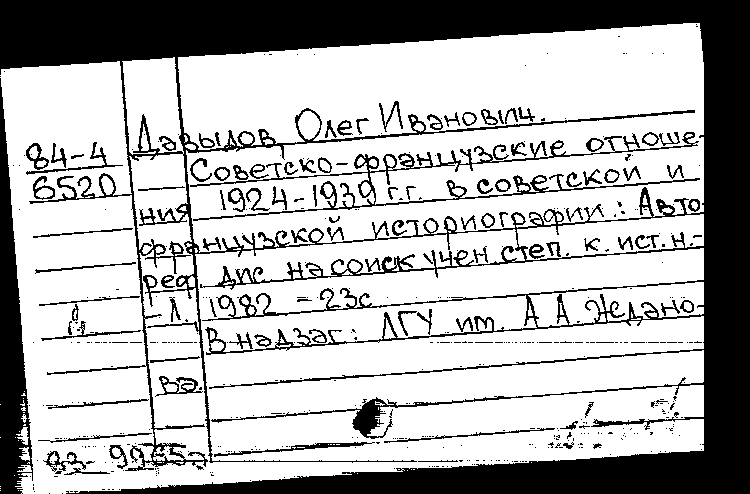 Давыдов, Олег Иванович.
84-4
6520
Советско-французские отноше-
ния 1924-1939 г.г. в советской и
французской историографии.: Авто-
реф. дис. на соиск учен. степ. к. ист. н.-
- Л. 1982 - 23с
В надзаг: ЛГУ им. А А. Ждано-
ва.
83-